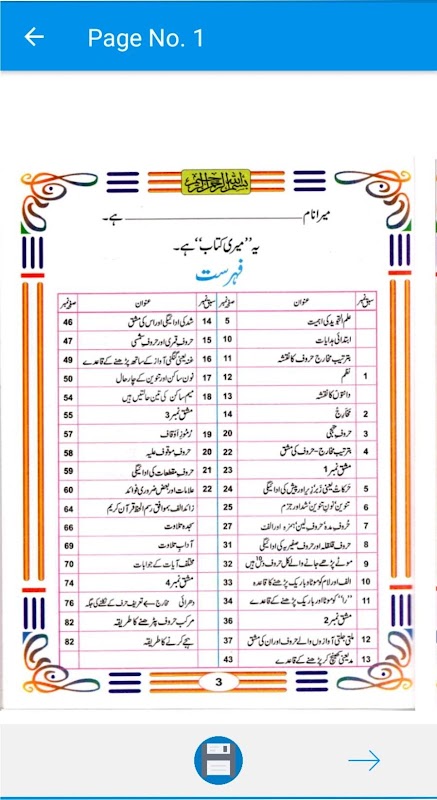 Page No. 1
بسم الله الرحمن الرحيم
میرا نام ــــــــــــــــــــ ہے۔
یہ ”میری کتاب“ ہے۔
فہرست
سبق نمبر عنوان صفحہ نمبر
علم التجوید کی اہمیت 5
ابتدائی ہدایات 10
بترتیب مخارج حروف کا نقشہ 11
1 نظم 12
دانتوں کا نقشہ 13
2 مخارج 14
3 حروف تہجی 20
4 بترتیب مخارج - حروف کی مشق 22
مشق نمبر 1 23
5 حرکات یعنی زبر زیر اور پیش کی ادائیگی 24
6 تنوین نون تنوین شد اور جزم 25
7 حروف مدہ حروف لین ہمزہ اور الف 27
8 حروف قلقلہ اور حروف صفیریہ کی ادائیگی 31
9 موٹے پڑھے جانے والے کل حروف دس ہیں 32
10 الف اور لام کو موٹا اور باریک پڑھنے کا قاعدہ 33
11 "را" کو موٹا اور باریک پڑھنے کے قاعدے 34
مشق نمبر 2 36
12 ملتی جلتی آوازوں والے حروف اور ان کی مشق 37
13 مد یعنی کھینچ کر پڑھنے کے قاعدے 43
سبق نمبر عنوان صفحہ نمبر
14 شد کی ادائیگی اور اس کی مشق 46
15 حروف قمری اور حروف شمسی 47
16 غنہ یعنی گنگنی آواز کے ساتھ پڑھنے کے قاعدے 49
17 نون ساکن اور تنوین کے چار حال 50
18 میم ساکن کی تین حالتیں ہیں 54
مشق نمبر 3 55
19 رموز اوقاف 57
20 حروف موقوف علیہ 58
21 حروف مقطعات کی ادائیگی 59
22 علامات اور بعض ضروری فوائد 60
زائد الف بموافق رسم الخط قرآن کریم 64
سجدہ تلاوت 66
آداب تلاوت 69
مختلف آیات کے جوابات 70
مشق نمبر 4 74
دھرائی مخارج بے تعریف حرف کے نقشے کی جگہ 76
مرکب حروف پڑھنے کا طریقہ 82
ہجے کرنے کا طریقہ 82
3